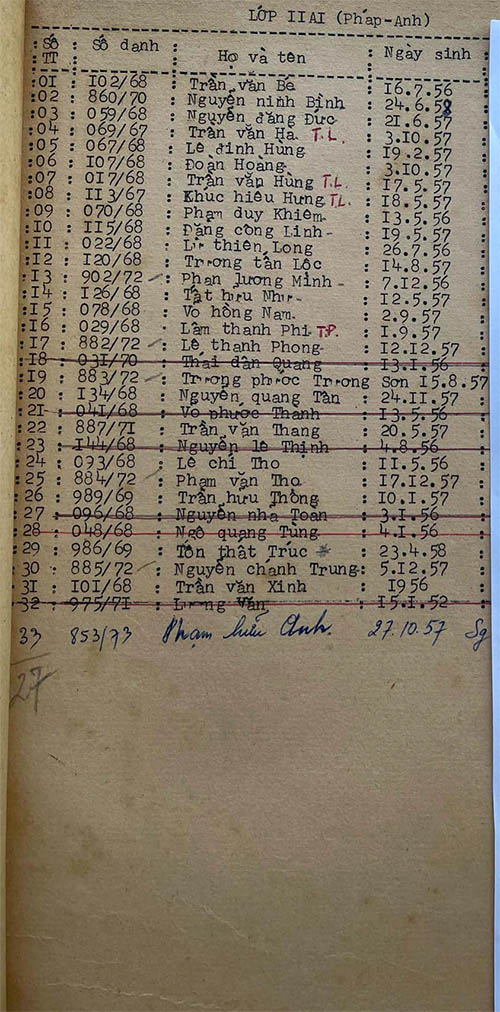 LỚP IIAI (Pháp-Anh)
:Số : Số danh : Họ và tên : Ngày sinh :
:TT : : : :
:01 : 102/68 : Trần văn Bé : 16.7.56
:02 : 860/70 : Nguyễn ninh Bình : 24.6.58
:03 : 059/68 : Nguyễn đăng Đức : 21.6.57
:04 : 069/67 : Trần văn Hạ T.L. : 3.10.57
:05 : 067/68 : Lê đình Hùng : 19.2.57
:06 : 107/68 : Đoàn Hoàng : 3.10.57
:07 : 017/68 : Trần văn Hùng T.L. : 17.5.57
:08 : 113/67 : Khúc hiếu Hưng T.L. : 18.5.57
:09 : 070/68 : Phạm duy Khiêm : 13.5.56
:10 : 115/68 : Đặng công Linh : 19.5.57
:11 : 022/68 : Lư thiên Long : 26.7.56
:12 : 120/68 : Trương tấn Lộc : 14.8.57
:13 : 902/72 : Phan lương Minh : 7.12.56
:14 : 126/68 : Tất hưu Như : 12.5.57
:15 : 078/68 : Vo hồng Nam : 2.9.57
:16 : 029/68 : Lâm thanh Phi T.P. : 1.9.57
:17 : 882/72 : Lê thanh Phong : 12.12.57
:18 : 031/70 : Thái dân Quang : 13.1.56
:19 : 883/72 : Trương phước Trương Sơn 15.8.57
:20 : 134/68 : Nguyễn quang Tân : 24.11.57
:21 : 041/68 : Vo phước Thanh : 13.5.56
:22 : 887/71 : Trần văn Thang : 20.5.57
:23 : 144/68 : Nguyễn lê Thịnh : 4.8.56
:24 : 093/68 : Lê chi Tho : 11.5.56
:25 : 884/72 : Phạm văn Tho : 17.12.57
:26 : 989/69 : Trần hưu Thông : 10.1.57
:27 : 096/68 : Nguyễn nha Toan : 3.1.56
:28 : 048/68 : Ngô quang Tùng : 4.1.56
:29 : 986/69 : Tôn thất Trúc : 23.4.58
:30 : 885/72 : Nguyễn chanh Trung : 5.12.57
:31 : 101/68 : Trần văn Xinh : 1956
:32 : 975/71 : Lương Văn : 15.1.52
33 853/73 Phạm hiếu Anh. 27.10.57 Sg
27